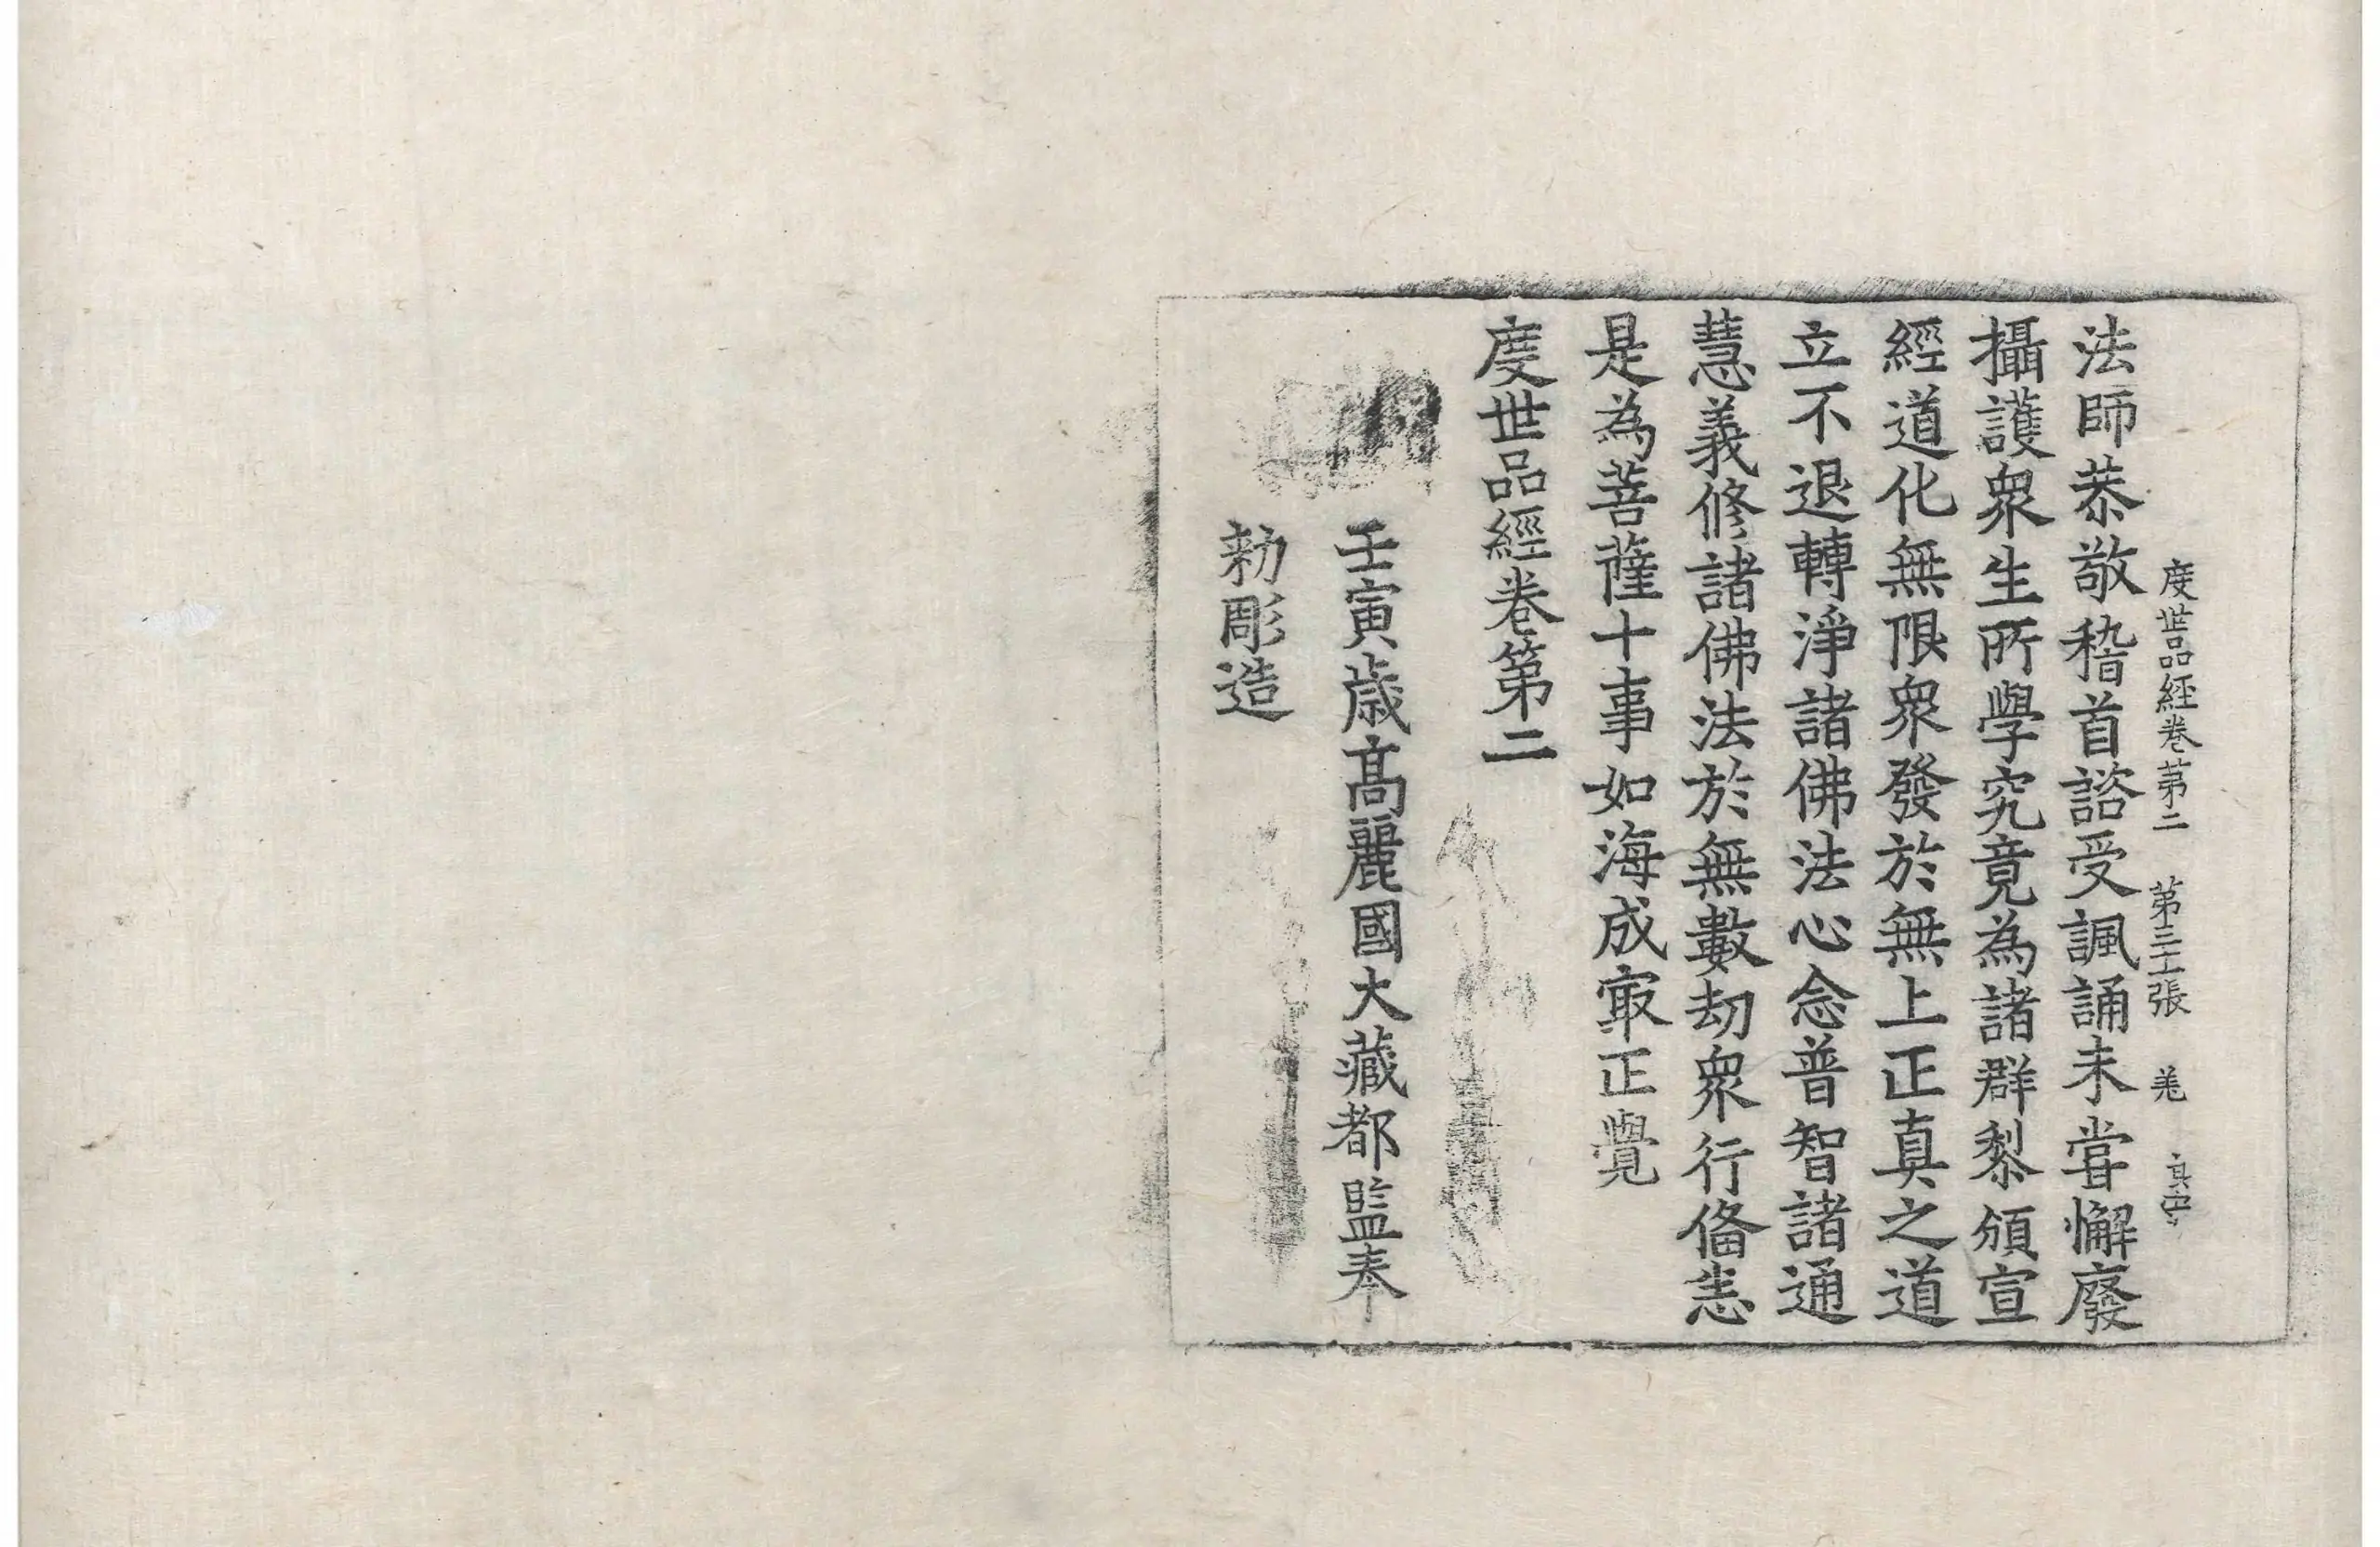 度世品經卷第二　第三十二張　羌　真守
法師恭敬稽首諮受諷誦未嘗懈廢
攝護衆生所學究竟為諸群黎頒宣
經道化無限衆發於無上正真之道
立不退轉淨諸佛法心念普智諸通
慧義修諸佛法於無數劫衆行俻悉
是為菩薩十事如海成㝡正覺
度世品經卷第二
壬寅歲高麗國大藏都監奉
勑彫造